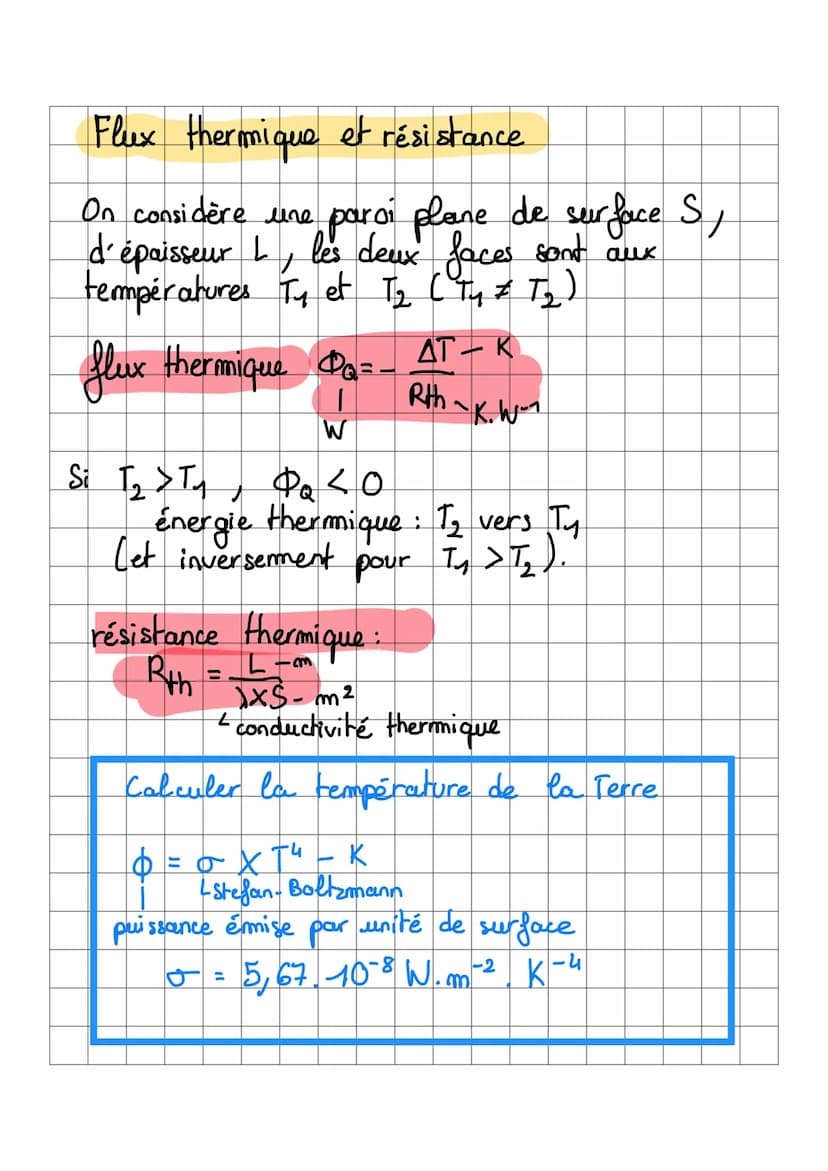 Flux thermique et résistance
On considère une paroi plane de surface S,
d'épaisseur L, les deux faces sont aux
températures T₁ et T₂ (T₁ ≠ T₂)
flux thermique Φ_Q = - ΔT/Rth
ΔT - K
Rth - K.W⁻¹
W
Si T₂ > T₁, Φ_Q < 0
énergie thermique : T₂ vers T₁
(et inversement pour T₁ > T₂).
résistance thermique :
Rth = L/(λ×S)
L - m
S - m²
conductivité thermique
Calculer la température de la Terre
ϕ = σ × T⁴ - K
Stefan-Boltzmann
puissance émise par unité de surface
σ = 5,67.10⁻⁸ W.m⁻².K⁻⁴